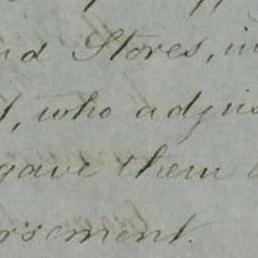 nd Stores, in
, who adjus
gave them
rsement.